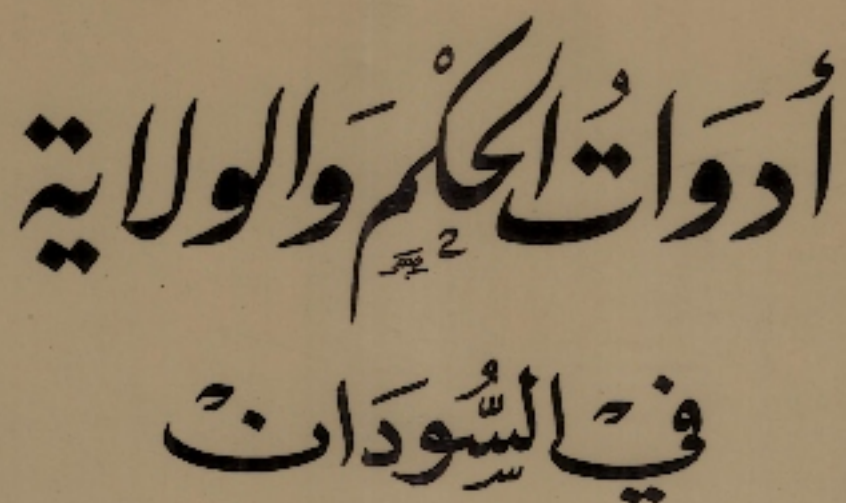 أدوَاتُ الحكْمِ وَالولاية
في السُّودَان